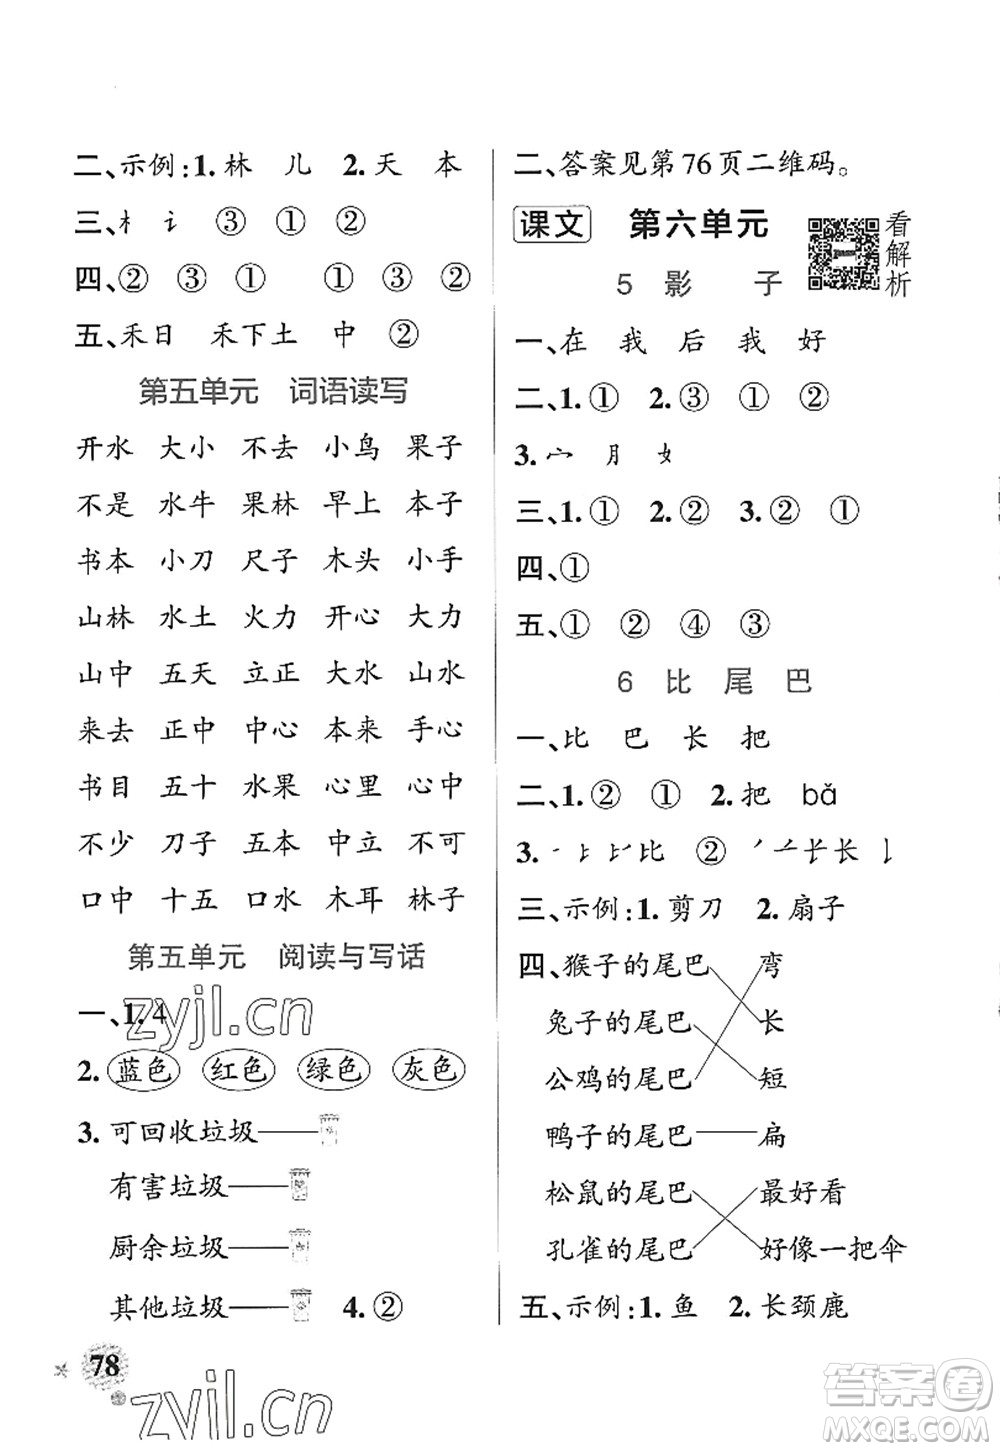 二、示例:1.林 儿 2.天 本
三、木 讠 ③ ① ②
四、② ③ ① ① ② ②
五、禾日 禾下土 中 ②
第五单元 词语读写
开水 大小 不去 小鸟 果子
不是 水牛 果林 早上 本子
书本 小刀 尺子 木头 小手
山林 水土 火力 开心 大力
山中 五天 立正 大水 山水
来去 正中 中心 本来 手心
书目 五十 水果 心里 心中
不少 刀子 五本 中立 不可
口中 十五 口水 木耳 林子
第五单元 阅读与写话
一、1.4
2.蓝色 红色 绿色 灰色
3.可回收垃圾
有害垃圾
厨余垃圾
其他垃圾 4.②
78
zyjl.cn
zyjl.cn
二、答案见第76页二维码。
课文 第六单元 看解析
5 影 子
一、在 我 后 我 好
二、1.① 2.③ ① ②
3.宀 月 女
三、1.① 2.② 3.② ①
四、①
五、① ② ④ ③
6 比 尾 巴
一、比 巴 长 把
二、1.② ① 2.把 bǎ
三、示例:1.剪刀 2.扇子
四、猴子的尾巴 弯
兔子的尾巴 长
公鸡的尾巴 短
鸭子的尾巴 扁
松鼠的尾巴 最好看
孔雀的尾巴 好像一把伞
五、示例:1.鱼 2.长颈鹿
答案圈
MXQE.COM